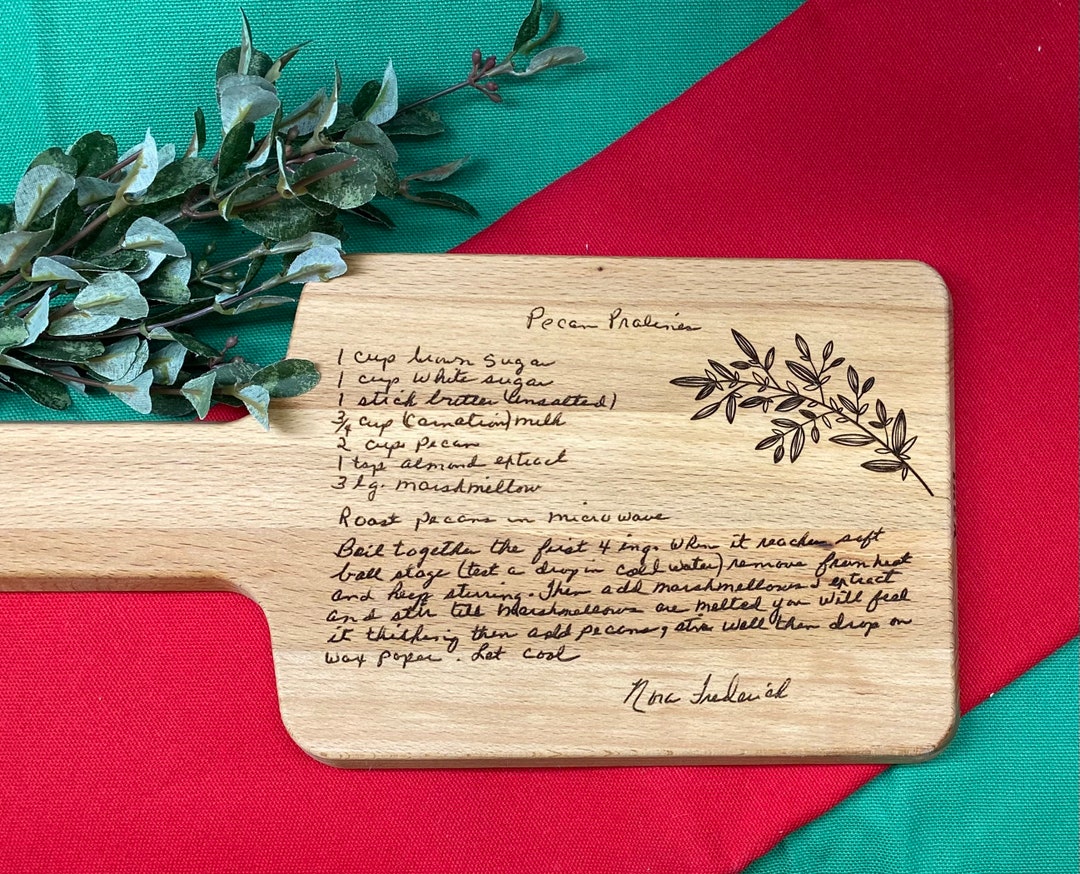 Pecan Pralines
1 cup brown sugar
1 cup white sugar
1 stick butter (unsalted)
3/4 cup (Carnation) milk
2 cups pecan
1 tsp almond extract
3 lg. marshmellow
Roast pecans in microwave
Boil together the first 4 ing. When it reaches soft
ball stage (test a drop in cold water) remove from heat
and keep stirring. Then add marshmellows & extract
and stir till marshmellows are melted you will feel
it thickning then add pecans, stir well then drop on
wax paper. Let cool
Nora Frederick